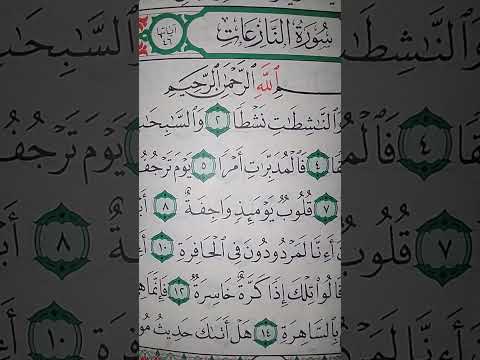 سُورَةُ النَّازِعَاتِ آيَاتُهَا ٤٦
ٱللَّهِ ٱلرَّحْمَٰنِ ٱلرَّحِيمِ
وَٱلنَّٰشِطَٰتِ نَشْطًا ٢ وَٱلسَّٰبِحَٰ
قًا ٤ فَٱلْمُدَبِّرَٰتِ أَمْرًا ٥ يَوْمَ تَرْجُفُ
٧ قُلُوبٌ يَوْمَئِذٍ وَاجِفَةٌ ٨
أَءِنَّا لَمَرْدُودُونَ فِى ٱلْحَافِرَةِ ١٠
قَالُوا۟ تِلْكَ إِذًا كَرَّةٌ خَاسِرَةٌ ١٢ فَإِنَّمَا
بِٱلسَّاهِرَةِ ١٤ هَلْ أَتَىٰكَ حَدِيثُ